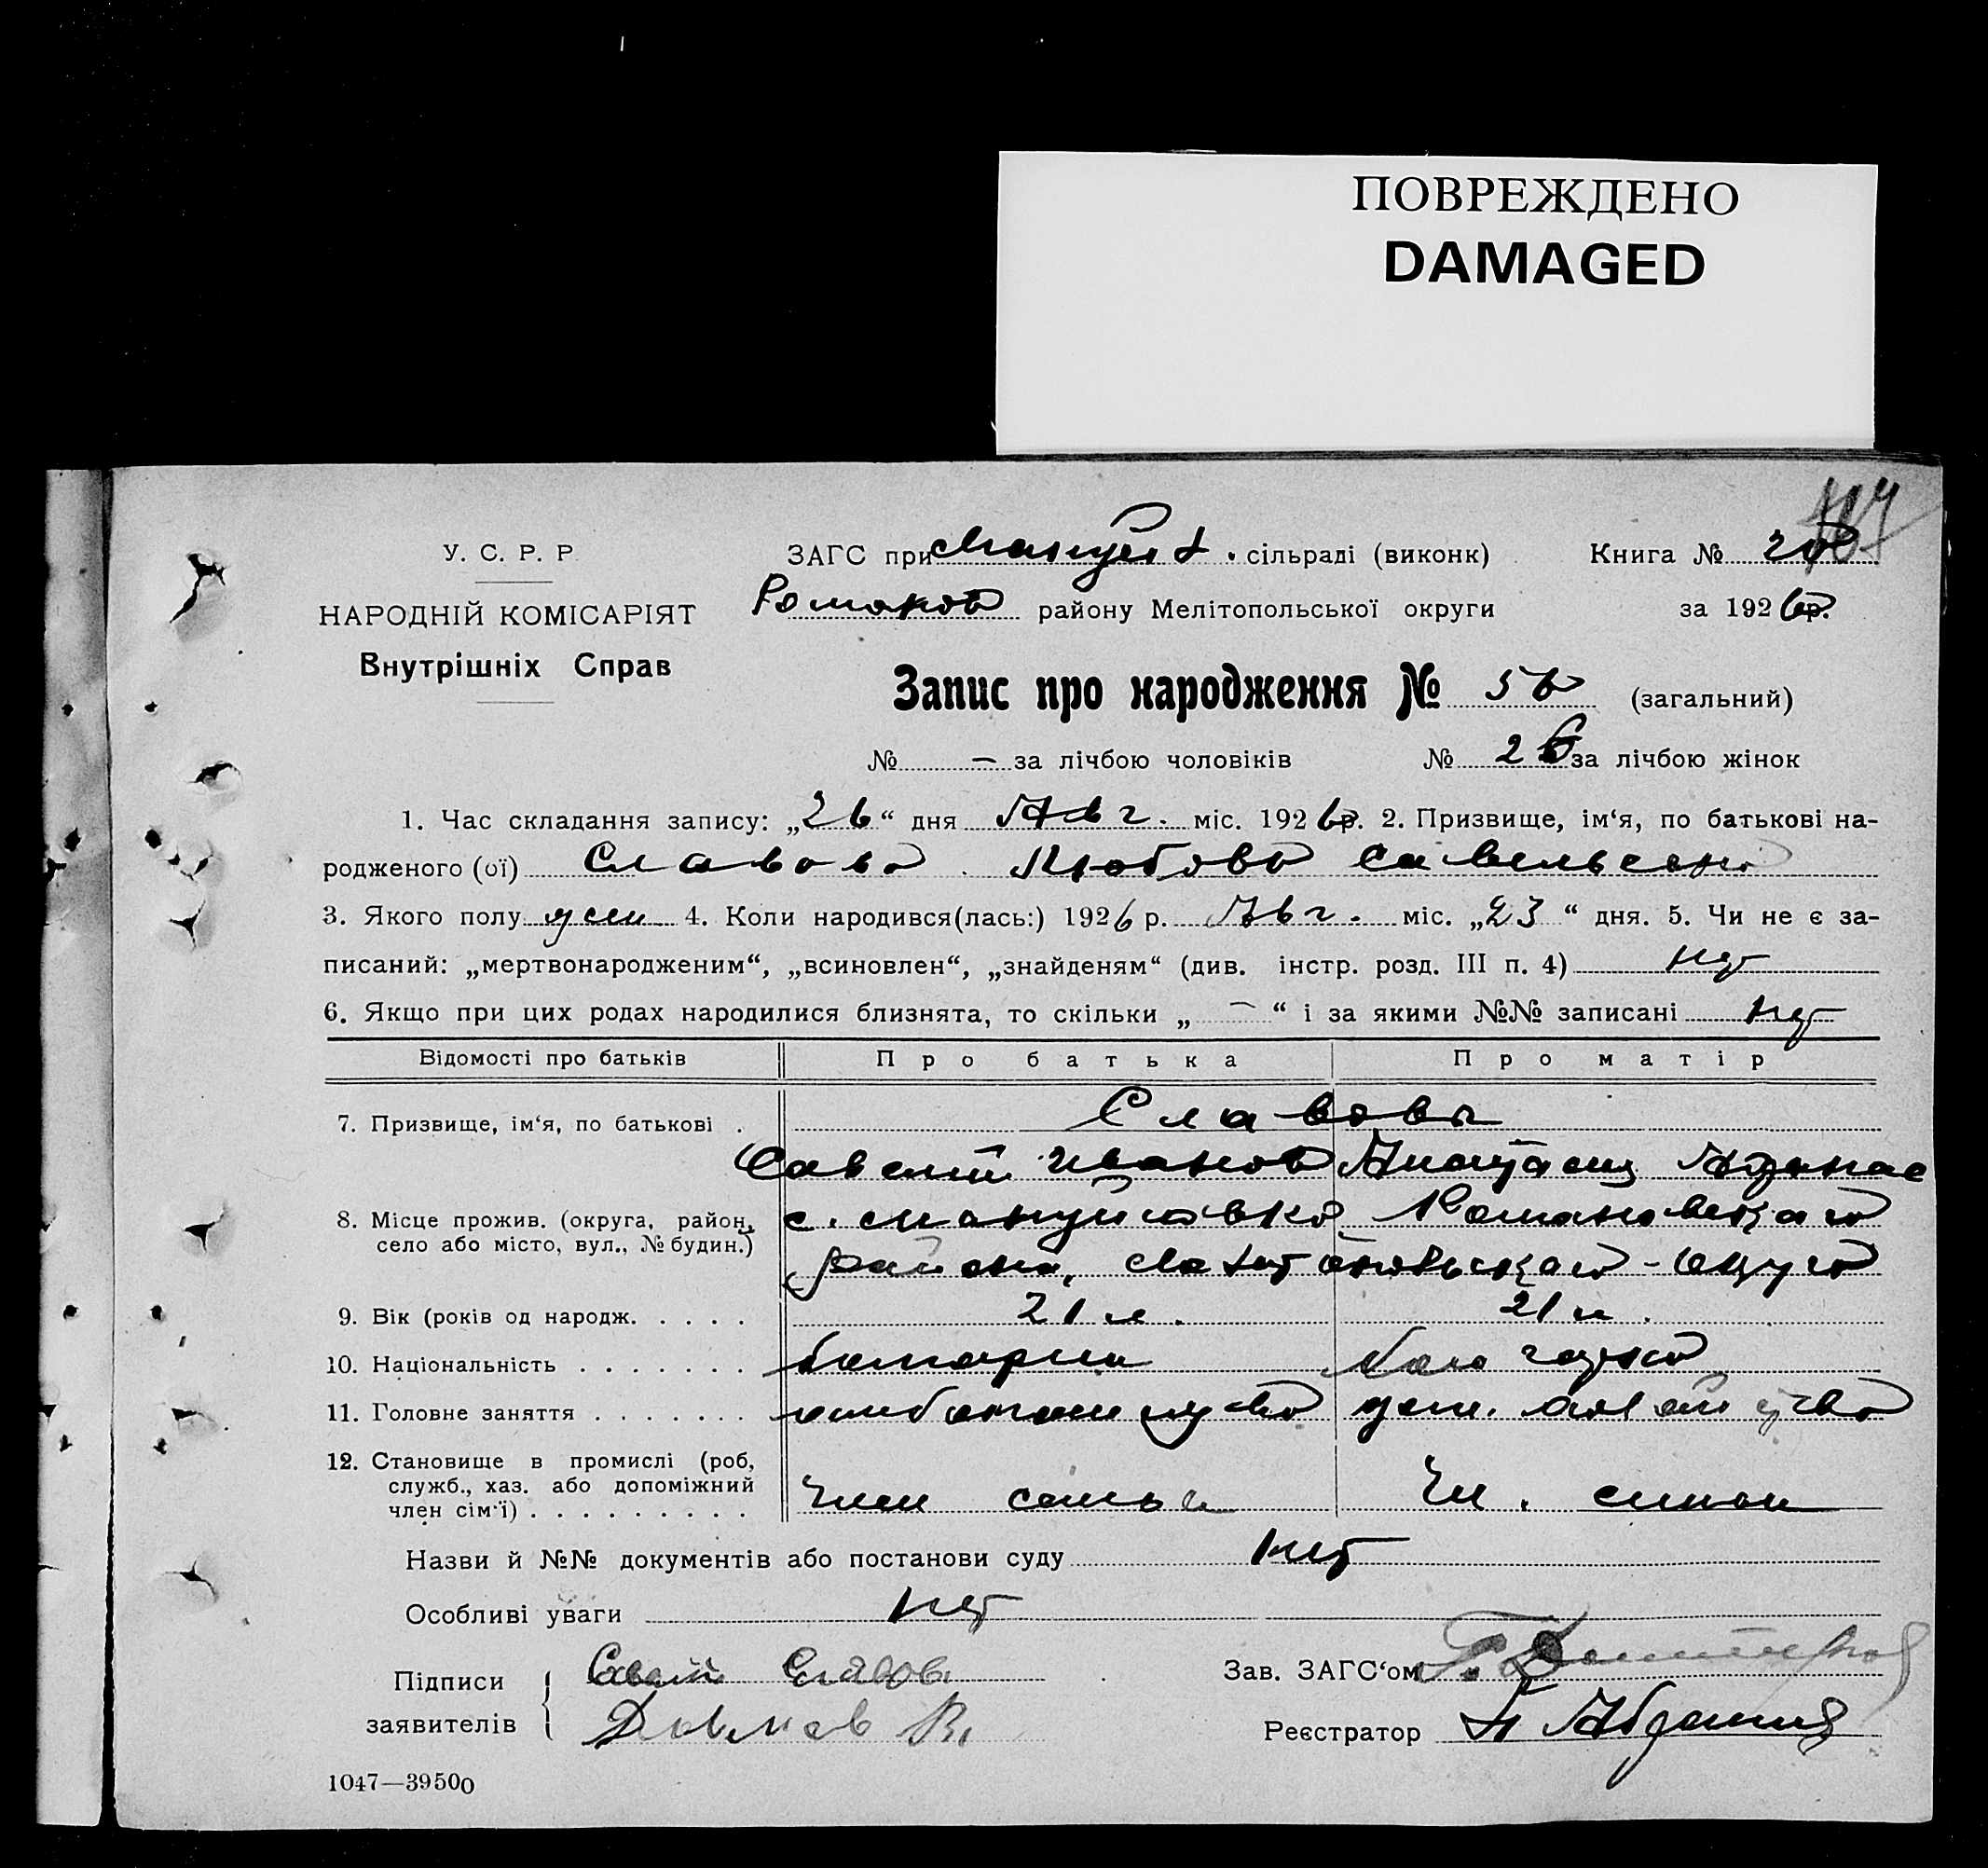 ПОВРЕЖДЕНО
DAMAGED
У. С. Р. Р.
НАРОДНІЙ КОМІСАРІЯТ
Внутрішніх Справ
ЗАГС при Мануйл. сільраді (виконк)
Книга №
Романов района Мелітопольської округи
за 1926 р.
Запис про народження № 56 (загальний)
№ — за лічбою чоловіків № 26 за лічбою жінок
1. Час складання запису: „26“ дня Авг. міс. 1926 р. 2. Призвище, ім‘я, по батькові на-
родженого (ої) Славова Любовь Савельевна
3. Якого полу жен 4. Коли народився(лась:) 1926 р. Авг. міс. „23“ дня. 5. Чи не є за-
писаний: „мертвонародженим“, „всиновлен“, „знайденям“ (див. інстр. розд. III п. 4) нет
6. Якщо при цих родах народилися близнята, то скільки „—“ і за якими №№ записані нет
Відомості про батьків Про батька Про матір
7. Призвище, ім‘я, по батькові . Славовы
Савелий Иванов Анастасия Афанас
8. Місце прожив. (округа, район, село або місто, вул., № будин.) с. Мануйловка Романовского
района, Мелитопольского округа
9. Вік (років од народж. . . . . 21 л. 21 л.
10. Національність . . . . . . . болгарин болгарка
11. Головне заняття . . . . . . . хлебопашество дом. хозяйство
12. Становище в промислі (роб, служб., хаз. або допоміжний член сім‘ї) . . . . . . . . . член семьи Чл. семьи
Назви й №№ документів або постанови суду нет
Особливі уваги нет
Підписи заявителів Савелий Славов
Зав. ЗАГС‘ом
Реєстратор
1047—39500